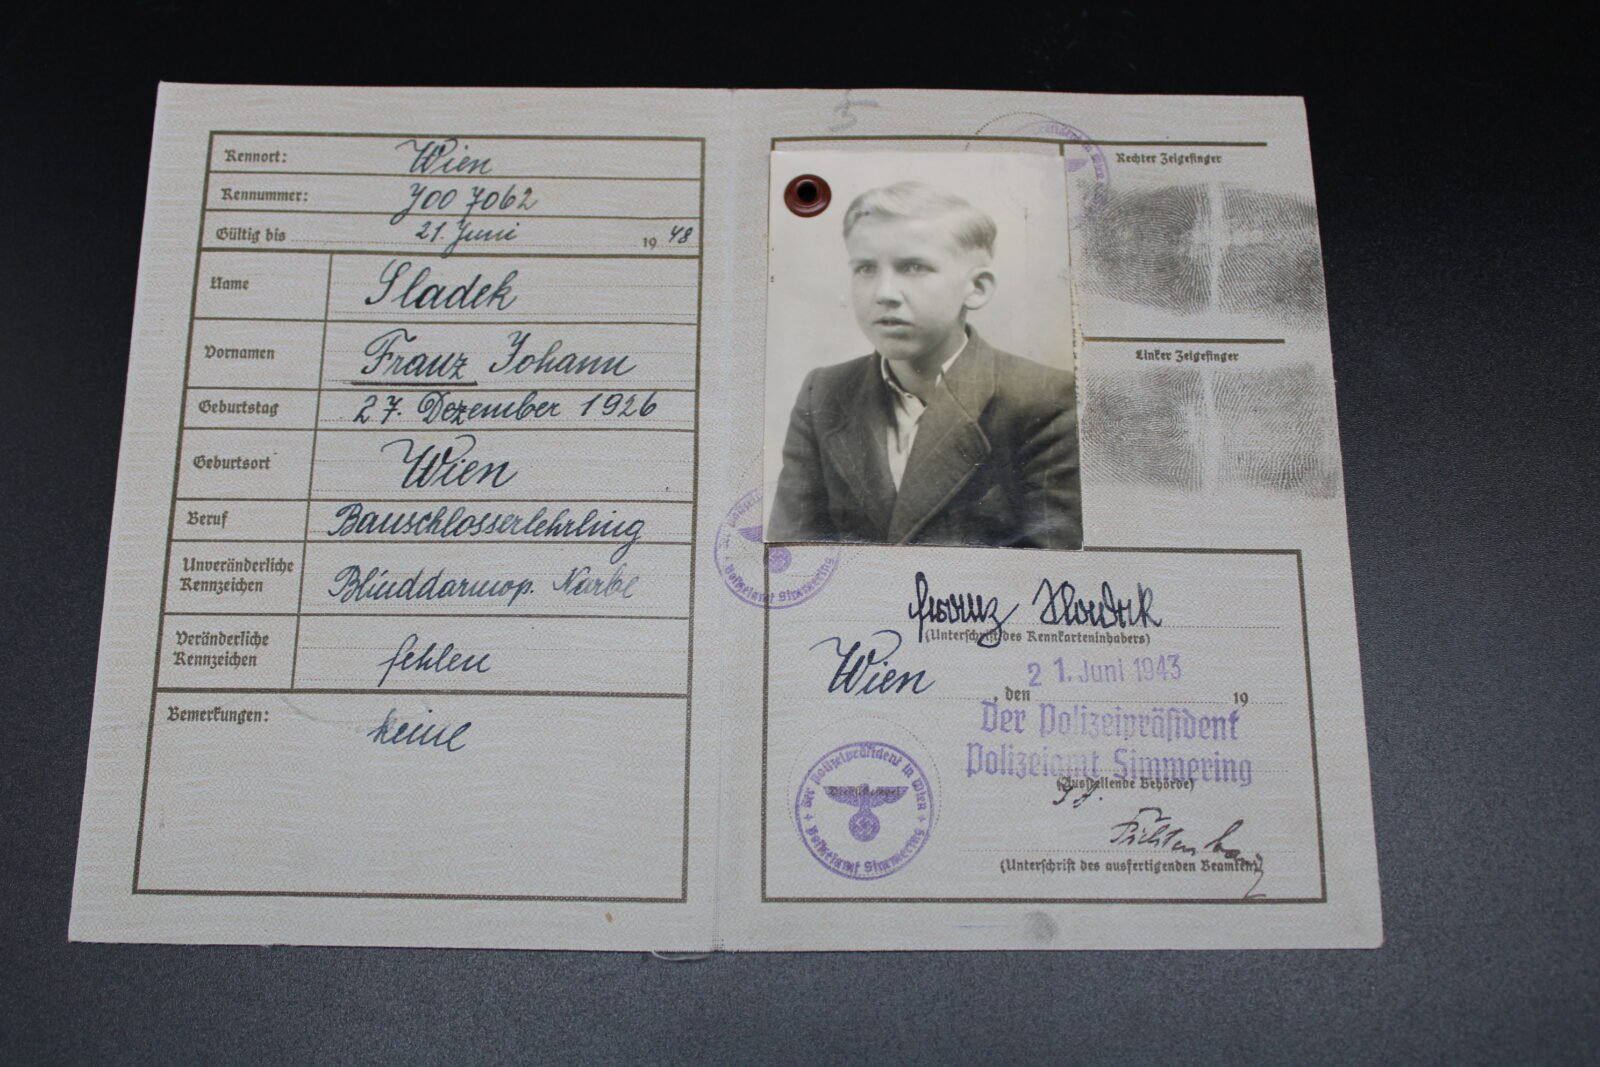 Kennort: Wien
Kennummer: J00 7062
Gültig bis 21. Juni 19 48
Name Sladek
Vornamen Franz Johann
Geburtstag 27. Dezember 1926
Geburtsort Wien
Beruf Bauschlosserlehrling
Unveränderliche
Kennzeichen Blinddarmop. Narbe
Veränderliche
Kennzeichen fehlen
Bemerkungen: keine
5
Rechter Zeigefinger
Linker Zeigefinger
Polizeiamt Simmering
Franz Sladek
(Unterschrift des Kennkarteninhabers)
Wien, den 21. Juni 1943 19
Der Polizeipräsident
Polizeiamt Simmering
(Ausstellende Behörde)
Der Polizeipräsident in Wien
Polizeiamt Simmering
(Unterschrift des ausfertigenden Beamten)